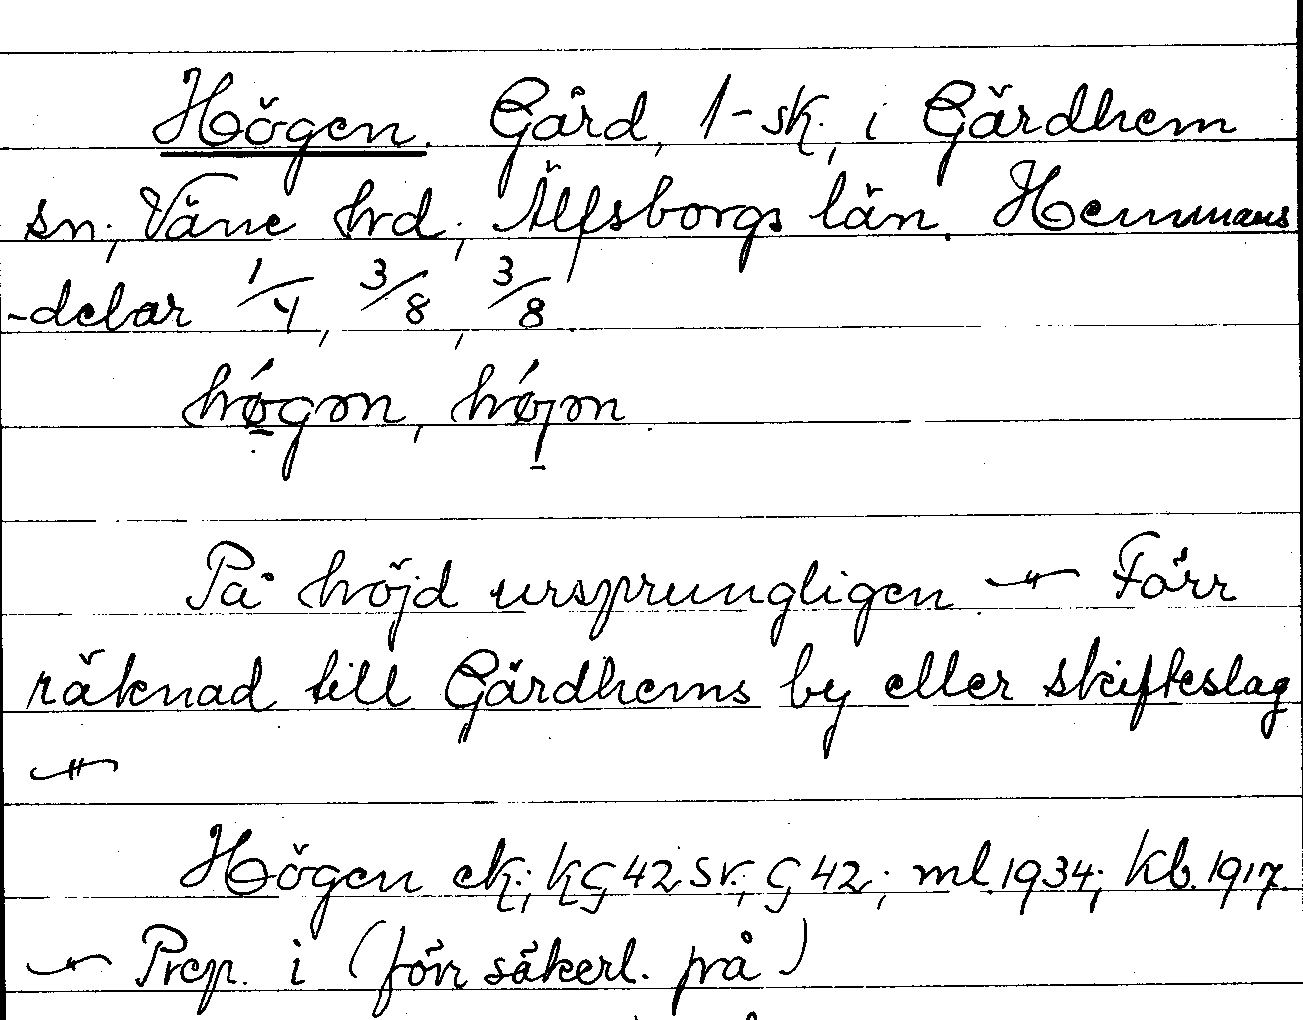 Högen. Gård, 1-sk., i Gärdhem
sn., Väne hrd, Älfsborgs län. Hemmans
-delar 1/4, 3/8, 3/8
hǿgən, hǿjən
På höjd ursprungligen. — Förr
räknad till Gärdhems by eller skifteslag
—
Högen ek.; KG 42 sv.; G 42; ml. 1934; kb. 1917.
— Prep. i (förr säkerl. på)